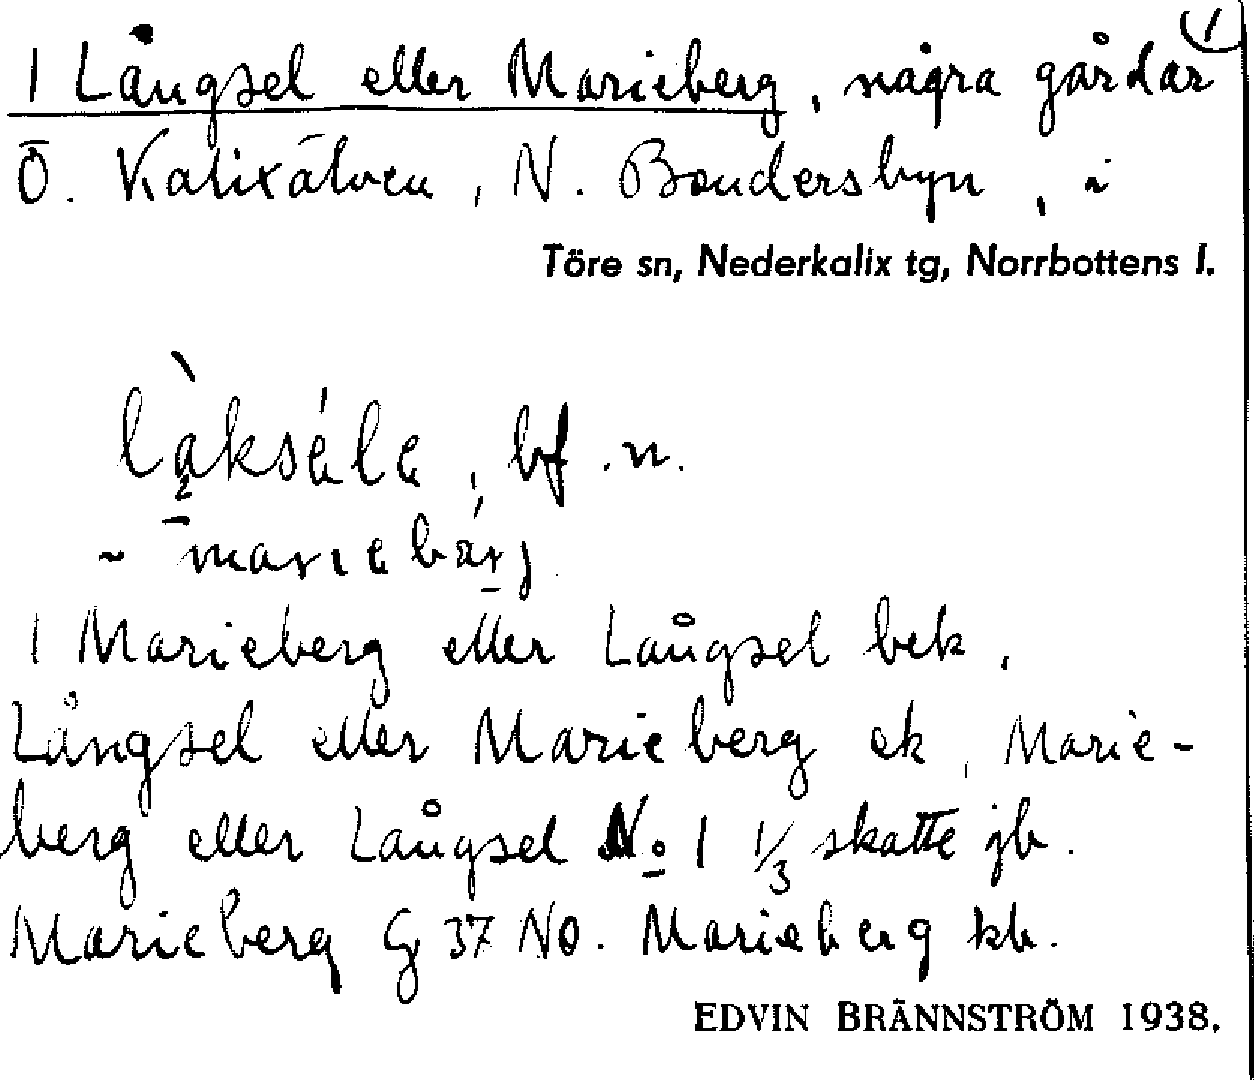 1
1 Långsel eller Marieberg, några gårdar
Ö. Kalixälven, N. Bondersbyn, i
Töre sn, Nederkalix tg, Norrbottens l.
bf. n.
1 Marieberg eller Långsel bek,
Långsel eller Marieberg ek, Marie-
berg eller Långsel No 1 1/3 skatte jb.
Marieberg G 37 NO. Marieberg kb.
EDVIN BRÄNNSTRÖM 1938.